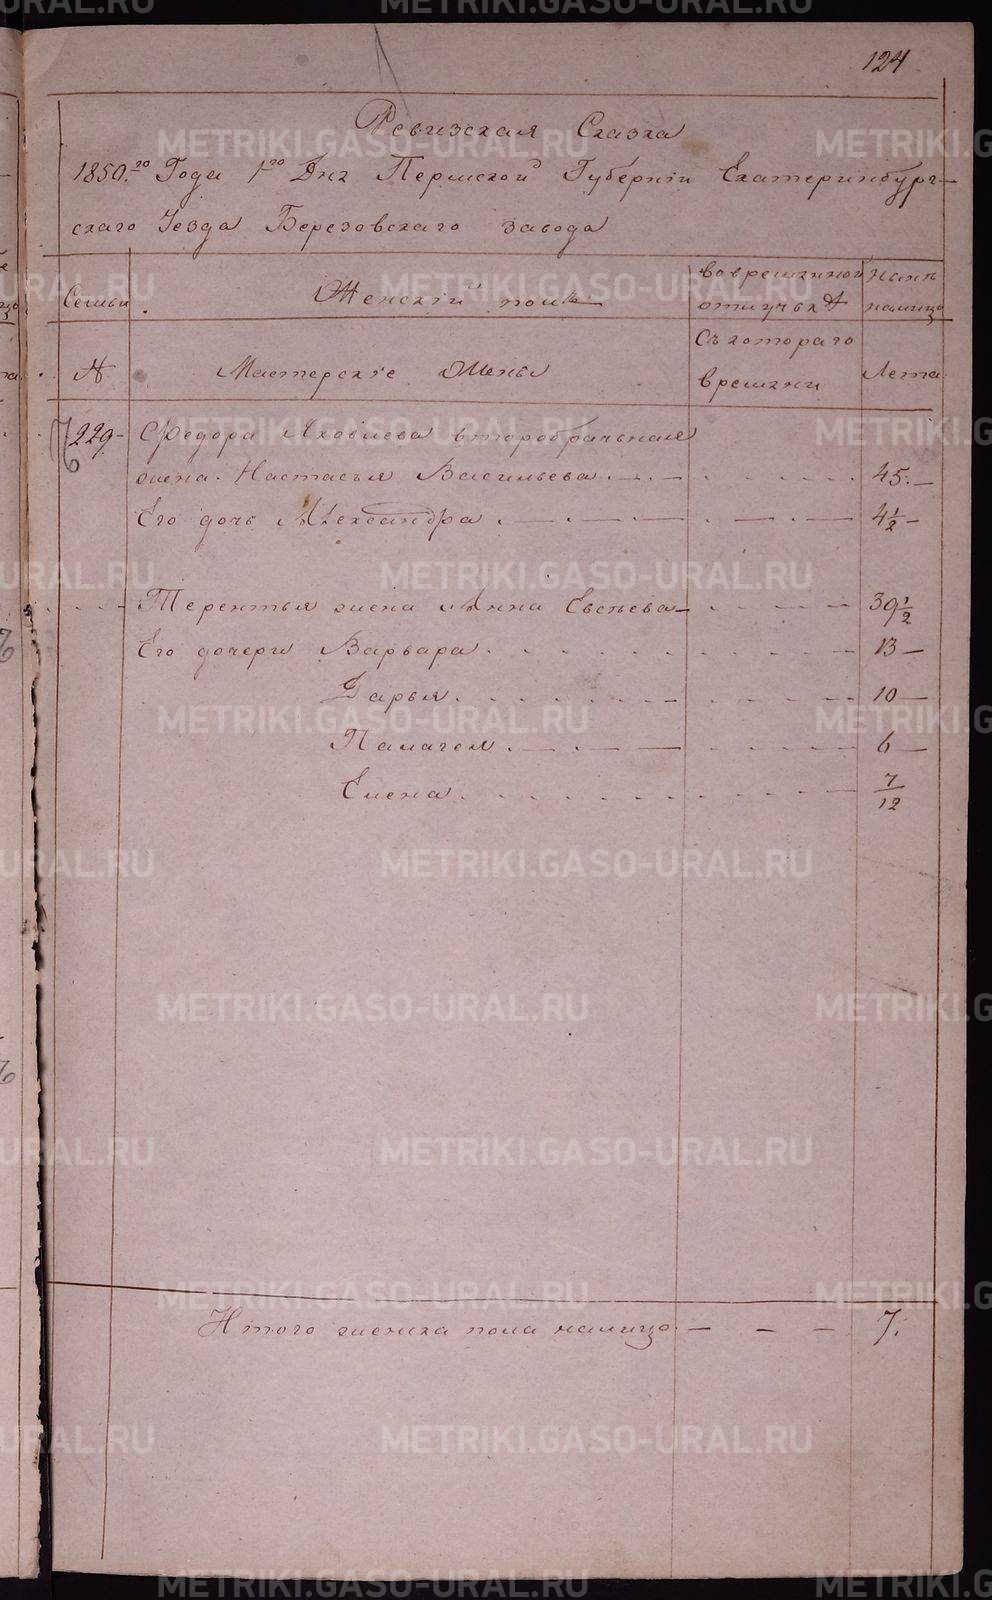 124
Ревизская Сказка
1850.го Года 1го Дня Пермской Губерніи Екатеринбург-
скаго Уезда Березовскаго завода
Семьи
Женскій полъ
Во временной отлучке
Ныне налицо
№
Мастерскіе Жены
Съ котораго времени
Лета
229. Федора Яковлева второбрачьная
жена Настасья Васильева 45.
Его дочь Александра 4 1/2
Терентья жена Анна Евсеева 39 1/2
Его дочери Варвара 13
Дарья 10
Палагея 6
Елена 7/12
Итого женска пола налицо 7.
METRIKI.GASO-URAL.RU